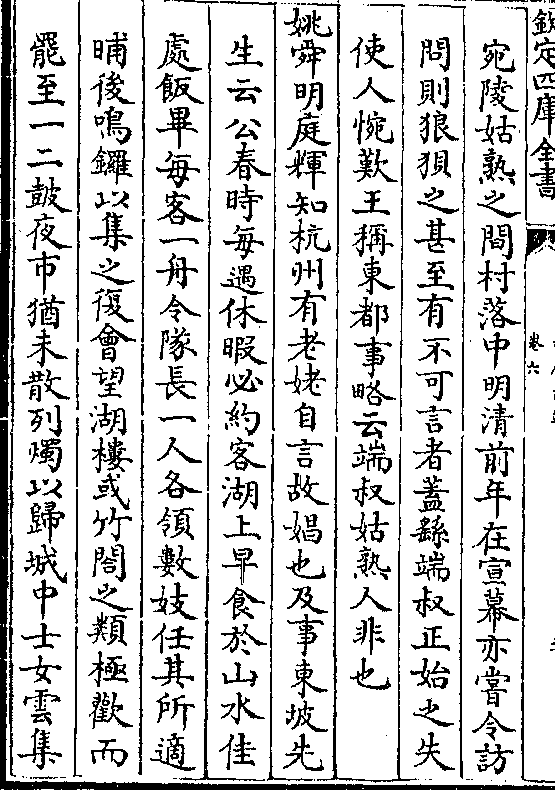 欽定四庫全書
卷六
宛陵姑熟之間村落中明清前年在宣幕亦嘗令訪
問則狼狽之甚至有不可言者蓋繇端叔正始之失
使人惋歎王稱東都事略云端叔姑熟人非也
姚舜明庭輝知杭州有老姥自言故娼也及事東坡先
生云公春時每遇休暇必約客湖上早食於山水佳
處飯畢每客一舟令隊長一人各領數妓任其所適
晡後鳴鑼以集之復會望湖樓或竹閤之類極歡而
罷至一二鼓夜市猶未散列燭以歸城中士女雲集